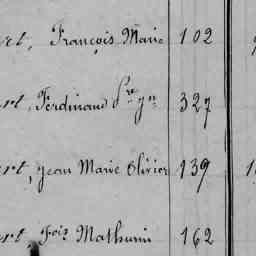 art, François Marie 102
art, Ferdinand Pre yn 327
art, Jean Marie Olivier 139
art, Fois Mathurin 162